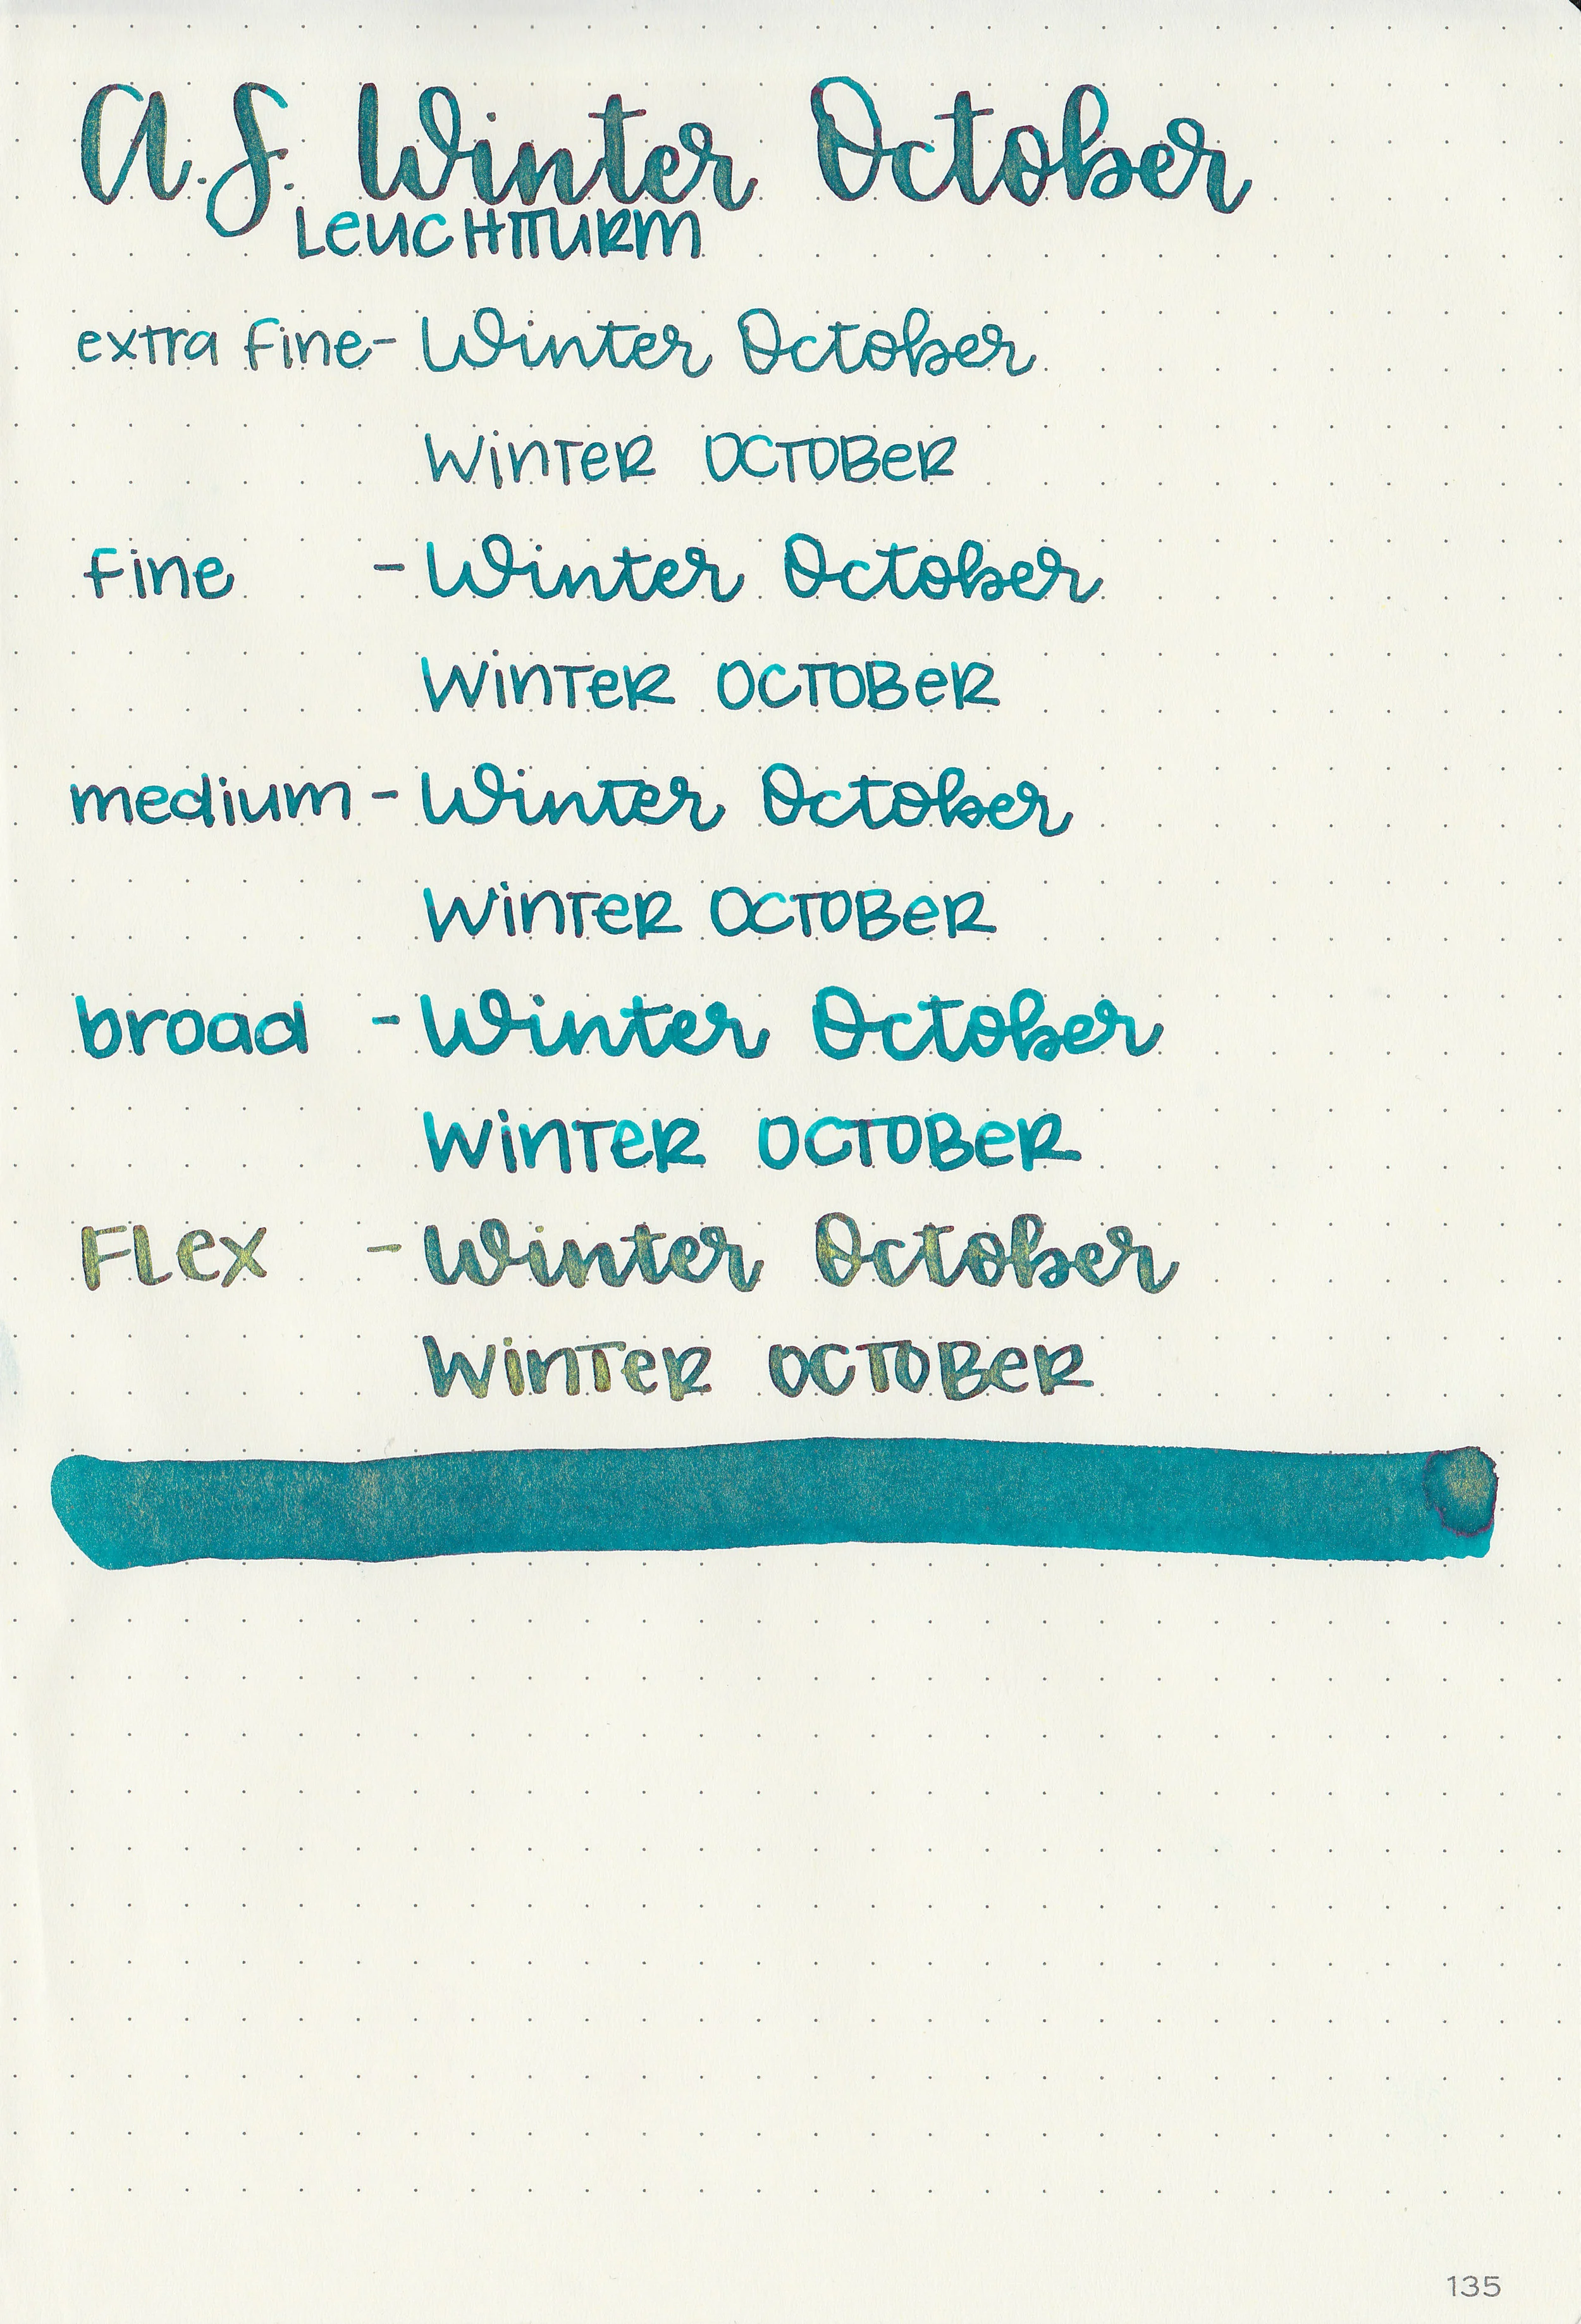 A.S. Winter October
LEUCHTTURM
extra fine - Winter October
WINTER OCTOBER
fine - Winter October
WINTER OCTOBER
medium - Winter October
WINTER OCTOBER
broad - Winter October
WINTER OCTOBER
FLEX - Winter October
WINTER OCTOBER
135